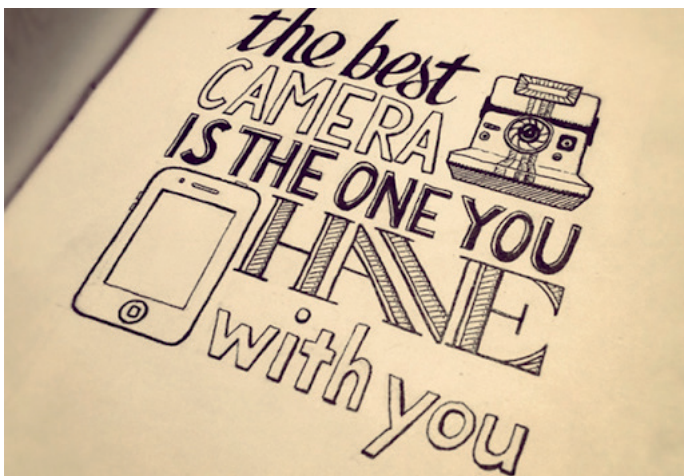 the best
CAMERA
IS THE ONE YOU
HAVE
with you